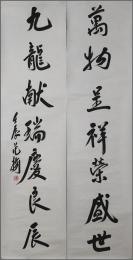 萬物呈祥榮盛世
九龍献瑞慶良辰